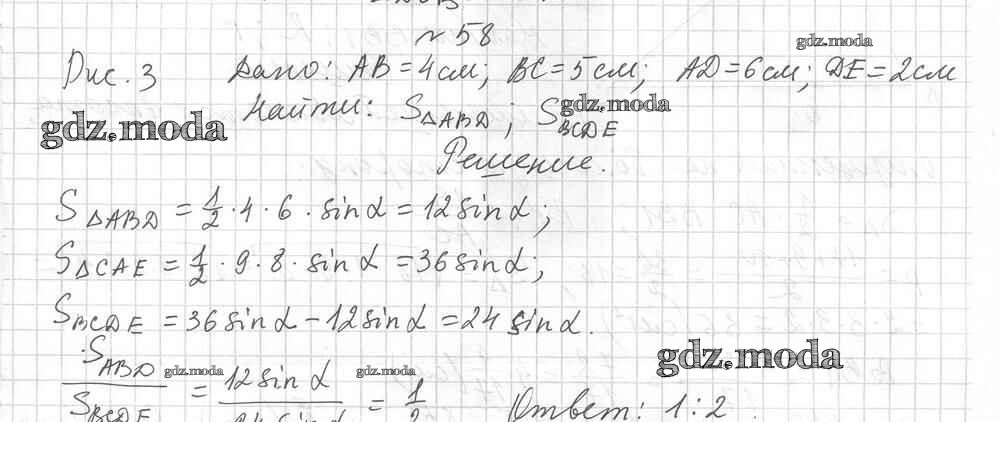 № 58
gdz.moda
Рис. 3 Дано: AB = 4 см; BC = 5 см; AD = 6 см; DE = 2 см
Найти: S△ABD ; S BCDE
gdz.moda
gdz.moda
Решение.
S△ABD = 1/2 · 4 · 6 · sin α = 12 sin α;
S△CAE = 1/2 · 9 · 8 · sin α = 36 sin α;
S BCDE = 36 sin α − 12 sin α = 24 sin α.
gdz.moda
S ABD / S BCDE = 12 sin α / 24 sin α = 1/2 Ответ: 1 : 2.
gdz.moda
gdz.moda